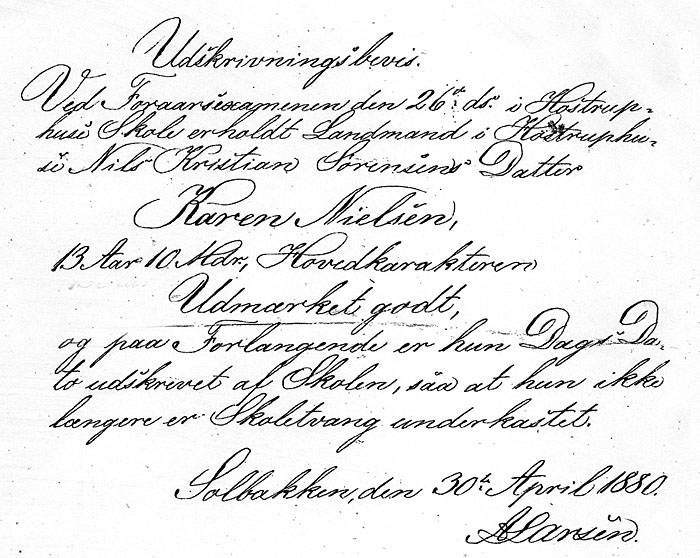 Udskrivningsbevis.
Ved Foraarsexamenen den 26de ds. i Hostrup-
huse Skole erholdt Landmand i Hostruphu-
se Nils Kristian Sørensens Datter
Karen Nielsen,
13 Aar 10 Mdr., Hovedkarakteren
Udmærket godt,
og paa Forlangende er hun Dags Da-
to udskrevet af Skolen, saa at hun ikke
længere er Skoletvang underkastet.
Solbakken, den 30te April 1880.
A Larsen.